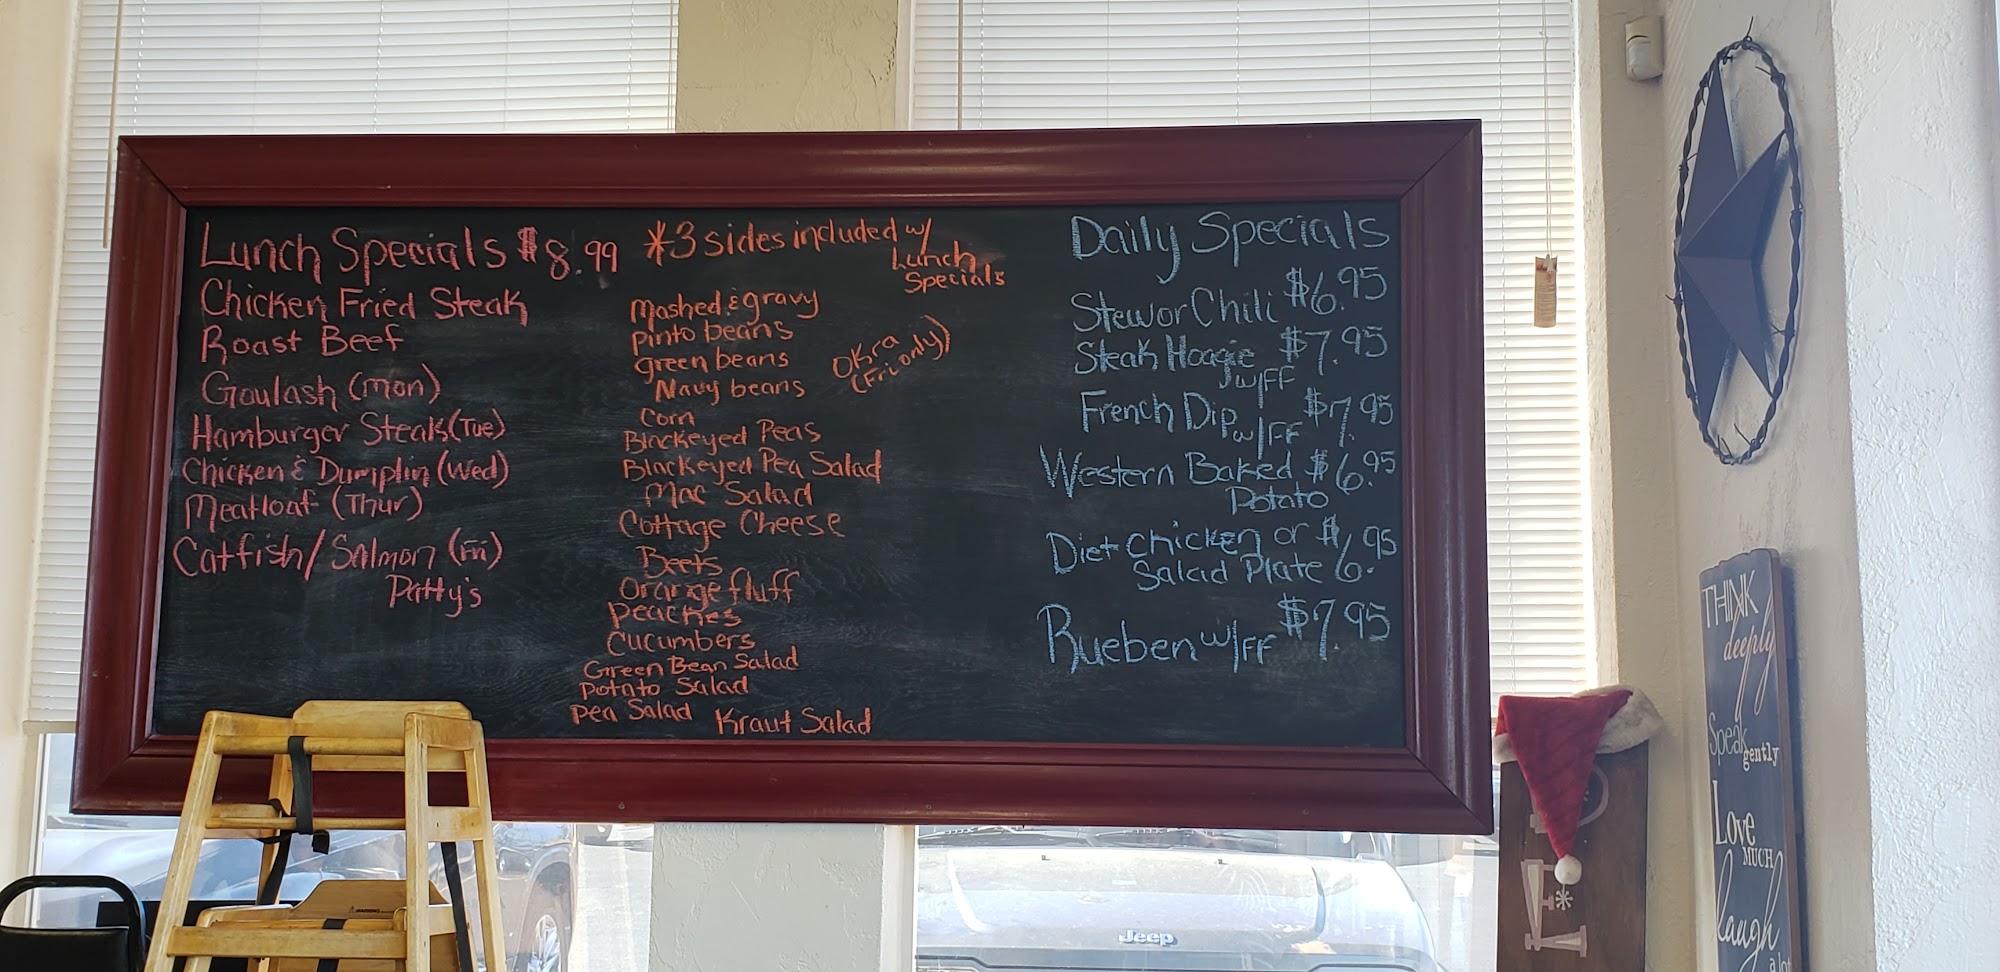 Lunch Specials $8.99
Chicken Fried Steak
Roast Beef
Goulash (mon)
Hamburger Steak (Tue)
Chicken & Dumplin (Wed)
Meatloaf (Thur)
Catfish/Salmon (Fri)
Patty's
*3 sides included w/
Lunch
Specials
Mashed & gravy
Pinto beans
green beans
Navy beans
Okra
(Fri only)
Corn
Blackeyed Peas
Blackeyed Pea Salad
Mac Salad
Cottage Cheese
Beets
Orange fluff
Peaches
Cucumbers
Green Bean Salad
Potato Salad
Pea Salad Kraut Salad
Daily Specials
Stew or Chili $6.95
Steak Hoagie $7.95
w/FF
French Dip w/FF $7.95
Western Baked $6.95
Potato
Diet Chicken or $6.95
Salad Plate
Rueben w/FF $7.95
THINK
deeply
Speak
gently
Love
MUCH
laugh
a lot
Jeep